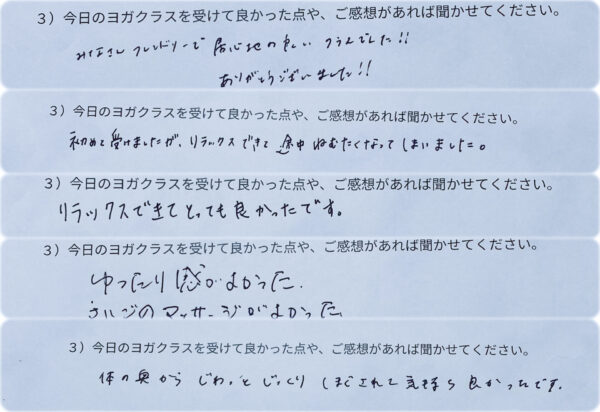 3）今日のヨガクラスを受けて良かった点や、ご感想があれば聞かせてください。
みなさん フレンドリーで 居心地の良い クラスでした!!
ありがとうございました!!
3）今日のヨガクラスを受けて良かった点や、ご感想があれば聞かせてください。
初めて受けましたが、リラックスできて 途中 ねむたくなってしまいました。
3）今日のヨガクラスを受けて良かった点や、ご感想があれば聞かせてください。
リラックスできてとっても良かったです。
3）今日のヨガクラスを受けて良かった点や、ご感想があれば聞かせてください。
ゆったり感がよかった.
さいごのマッサージがよかった
3）今日のヨガクラスを受けて良かった点や、ご感想があれば聞かせてください。
体の奥から じわっと じっくり ほぐされて 気持ち 良かったです.